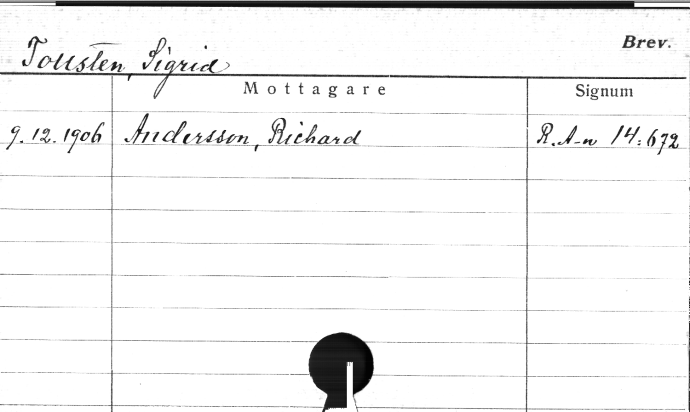 Brev.
Tollsten, Sigrid
Mottagare
Signum
9.12.1906 Andersson, Richard R.A-n 14:672